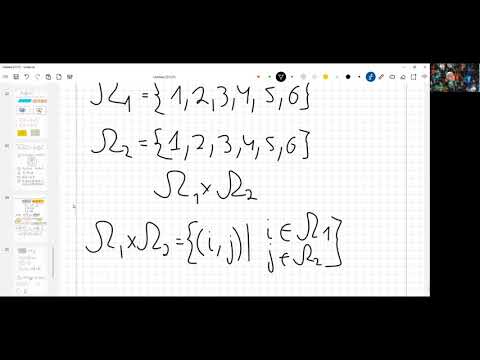 Ω₁ = {1, 2, 3, 4, 5, 6}
Ω₂ = {1, 2, 3, 4, 5, 6}
Ω₁ x Ω₂
Ω₁ x Ω₂ = {(i, j) | i ∈ Ω1
j ∈ Ω₂}